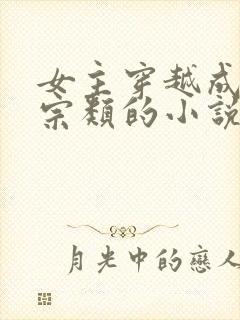 女主穿越成
宗類的小說
月光中的戀人